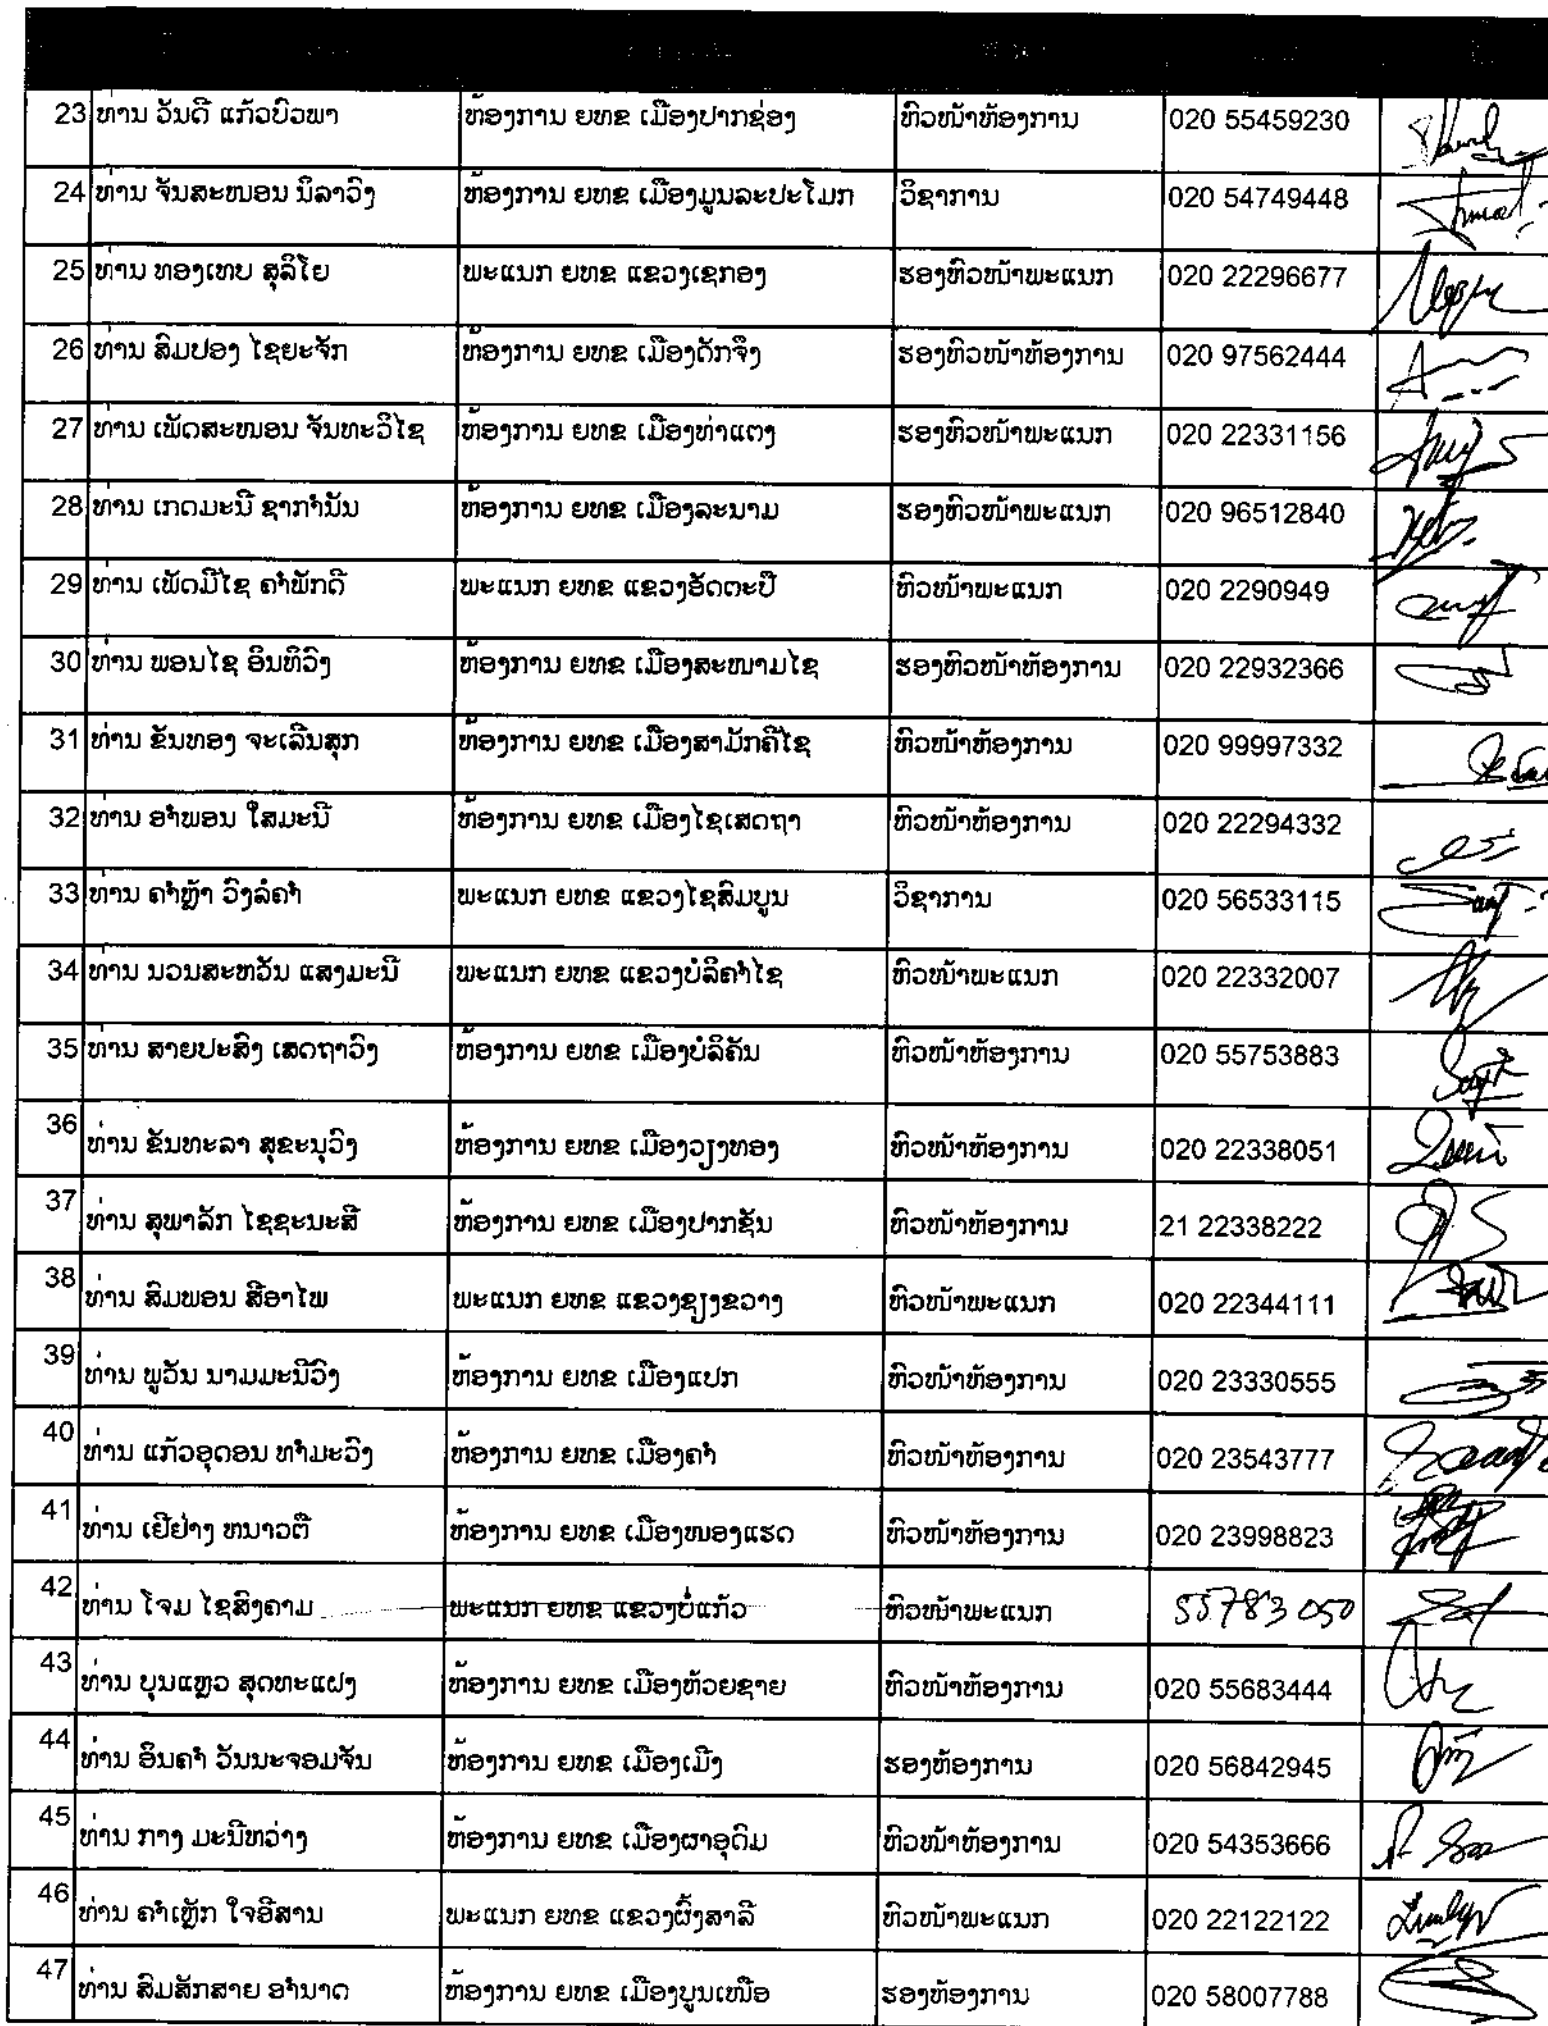 23 ທ່ານ ວັນດີ ແກ້ວບົວພາ ຫ້ອງການ ຍທຂ ເມືອງປາກຊ່ອງ ຫົວໜ້າຫ້ອງການ 020 55459230
24 ທ່ານ ຈັນສະໝອນ ນິລາວົງ ຫ້ອງການ ຍທຂ ເມືອງມູນລະປະໂມກ ວິຊາການ 020 54749448
25 ທ່ານ ທອງເທບ ສຸລິໂຍ ພະແນກ ຍທຂ ແຂວງເຊກອງ ຮອງຫົວໜ້າພະແນກ 020 22296677
26 ທ່ານ ສົມປອງ ໄຊຍະຈັກ ຫ້ອງການ ຍທຂ ເມືອງດັກຈຶງ ຮອງຫົວໜ້າຫ້ອງການ 020 97562444
27 ທ່ານ ເພັດສະໝອນ ຈັນທະວິໄຊ ຫ້ອງການ ຍທຂ ເມືອງທ່າແຕງ ຮອງຫົວໜ້າພະແນກ 020 22331156
28 ທ່ານ ເກດມະນີ ຊາກຳນັນ ຫ້ອງການ ຍທຂ ເມືອງລະນາມ ຮອງຫົວໜ້າພະແນກ 020 96512840
29 ທ່ານ ເພັດມີໄຊ ຄຳພັກດີ ພະແນກ ຍທຂ ແຂວງອັດຕະປື ຫົວໜ້າພະແນກ 020 2290949
30 ທ່ານ ພອນໄຊ ອິນທິວົງ ຫ້ອງການ ຍທຂ ເມືອງສະໜາມໄຊ ຮອງຫົວໜ້າຫ້ອງການ 020 22932366
31 ທ່ານ ຂັນທອງ ຈະເລີນສຸກ ຫ້ອງການ ຍທຂ ເມືອງສາມັກຄີໄຊ ຫົວໜ້າຫ້ອງການ 020 99997332
32 ທ່ານ ອຳພອນ ໃສມະນີ ຫ້ອງການ ຍທຂ ເມືອງໄຊເສດຖາ ຫົວໜ້າຫ້ອງການ 020 22294332
33 ທ່ານ ຄຳຫຼ້າ ວົງລໍຄຳ ພະແນກ ຍທຂ ແຂວງໄຊສົມບູນ ວິຊາການ 020 56533115
34 ທ່ານ ນວນສະຫວັນ ແສງມະນີ ພະແນກ ຍທຂ ແຂວງບໍລິຄຳໄຊ ຫົວໜ້າພະແນກ 020 22332007
35 ທ່ານ ສາຍປະສົງ ເສດຖາວົງ ຫ້ອງການ ຍທຂ ເມືອງບໍລິຄັນ ຫົວໜ້າຫ້ອງການ 020 55753883
36 ທ່ານ ຂັນທະລາ ສຸຂະນຸວົງ ຫ້ອງການ ຍທຂ ເມືອງວຽງທອງ ຫົວໜ້າຫ້ອງການ 020 22338051
37 ທ່ານ ສຸພາລັກ ໄຊຊະນະສີ ຫ້ອງການ ຍທຂ ເມືອງປາກຊັນ ຫົວໜ້າຫ້ອງການ 21 22338222
38 ທ່ານ ສົມພອນ ສີອາໄພ ພະແນກ ຍທຂ ແຂວງຊຽງຂວາງ ຫົວໜ້າພະແນກ 020 22344111
39 ທ່ານ ພູວັນ ນາມມະນີວົງ ຫ້ອງການ ຍທຂ ເມືອງແປກ ຫົວໜ້າຫ້ອງການ 020 23330555
40 ທ່ານ ແກ້ວອຸດອນ ທຳມະວົງ ຫ້ອງການ ຍທຂ ເມືອງຄຳ ຫົວໜ້າຫ້ອງການ 020 23543777
41 ທ່ານ ເຢີຢ່າງ ຫນາວຕື ຫ້ອງການ ຍທຂ ເມືອງໜອງແຮດ ຫົວໜ້າຫ້ອງການ 020 23998823
42 ທ່ານ ໂຈມ ໄຊສົງຄາມ ພະແນກ ຍທຂ ແຂວງບໍ່ແກ້ວ ຫົວໜ້າພະແນກ 55783050
43 ທ່ານ ບຸນແຫຼວ ສຸດທະແຝງ ຫ້ອງການ ຍທຂ ເມືອງຫ້ວຍຊາຍ ຫົວໜ້າຫ້ອງການ 020 55683444
44 ທ່ານ ອິນຄຳ ວັນນະຈອມຈັນ ຫ້ອງການ ຍທຂ ເມືອງເມິງ ຮອງຫ້ອງການ 020 56842945
45 ທ່ານ ກາງ ມະນີຫວ່າງ ຫ້ອງການ ຍທຂ ເມືອງຜາອຸດົມ ຫົວໜ້າຫ້ອງການ 020 54353666
46 ທ່ານ ຄຳເຫຼັກ ໃຈອີສານ ພະແນກ ຍທຂ ແຂວງຜົ້ງສາລີ ຫົວໜ້າພະແນກ 020 22122122
47 ທ່ານ ສົມສັກສາຍ ອຳນາດ ຫ້ອງການ ຍທຂ ເມືອງບູນເໜືອ ຮອງຫ້ອງການ 020 58007788